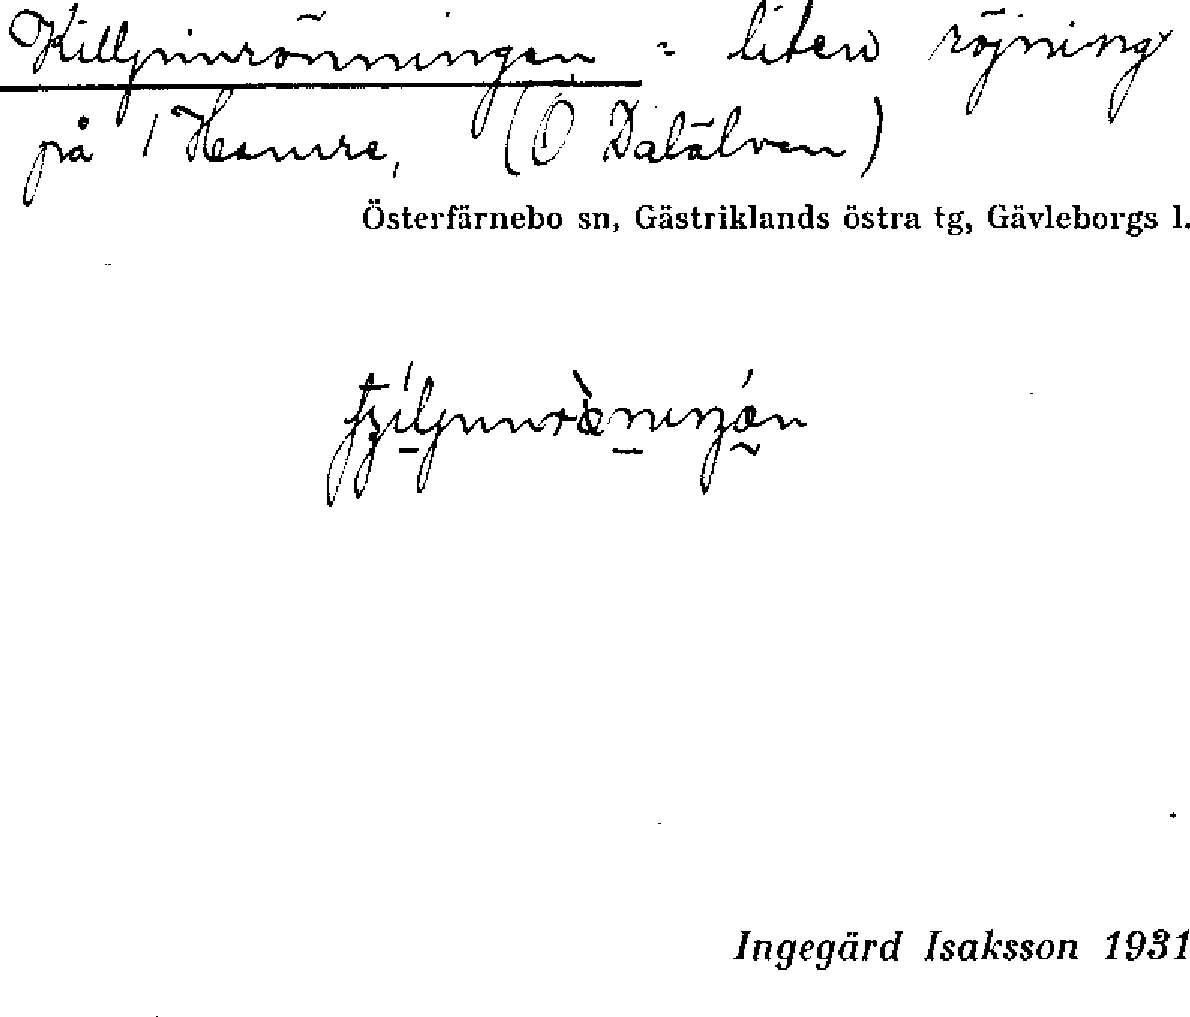 Killjinnrönningen = liten röjning
på 1 Hamre, (Ö Dalälven)
Österfärnebo sn, Gästriklands östra tg, Gävleborgs l.
Ingegärd Isaksson 1931